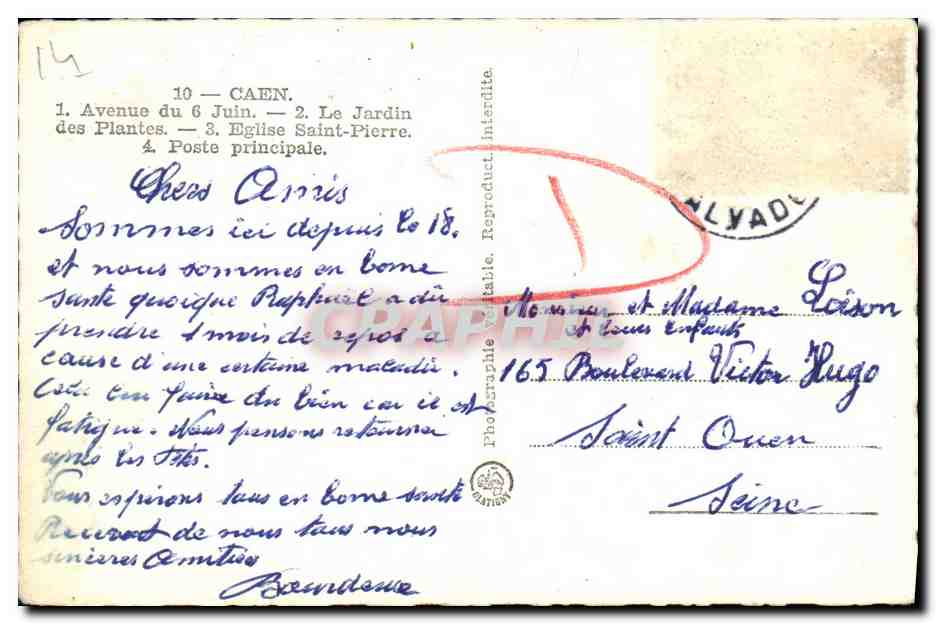 14
10 — CAEN.
1. Avenue du 6 Juin. — 2. Le Jardin
des Plantes. — 3. Eglise Saint-Pierre.
4. Poste principale.
Chers Amis
Sommes ici depuis le 18.
et nous sommes en bonne
santé quoique Raphaël a dû
prendre 1 mois de repos a
cause d'une certaine maladie.
Cela faire du bien car il est
fatigué. Nous pensons retourner
après les fêtes.
Vous espérons tous en bonne santé
Recevez de nous tous nous
sincères Amitiés
Photographie véritable. Reproduct. interdite.
CPARAMA
CALVADOS
Monsieur et Madame Loison
et leurs enfants
165 Boulevard Victor Hugo
Saint Ouen
Seine